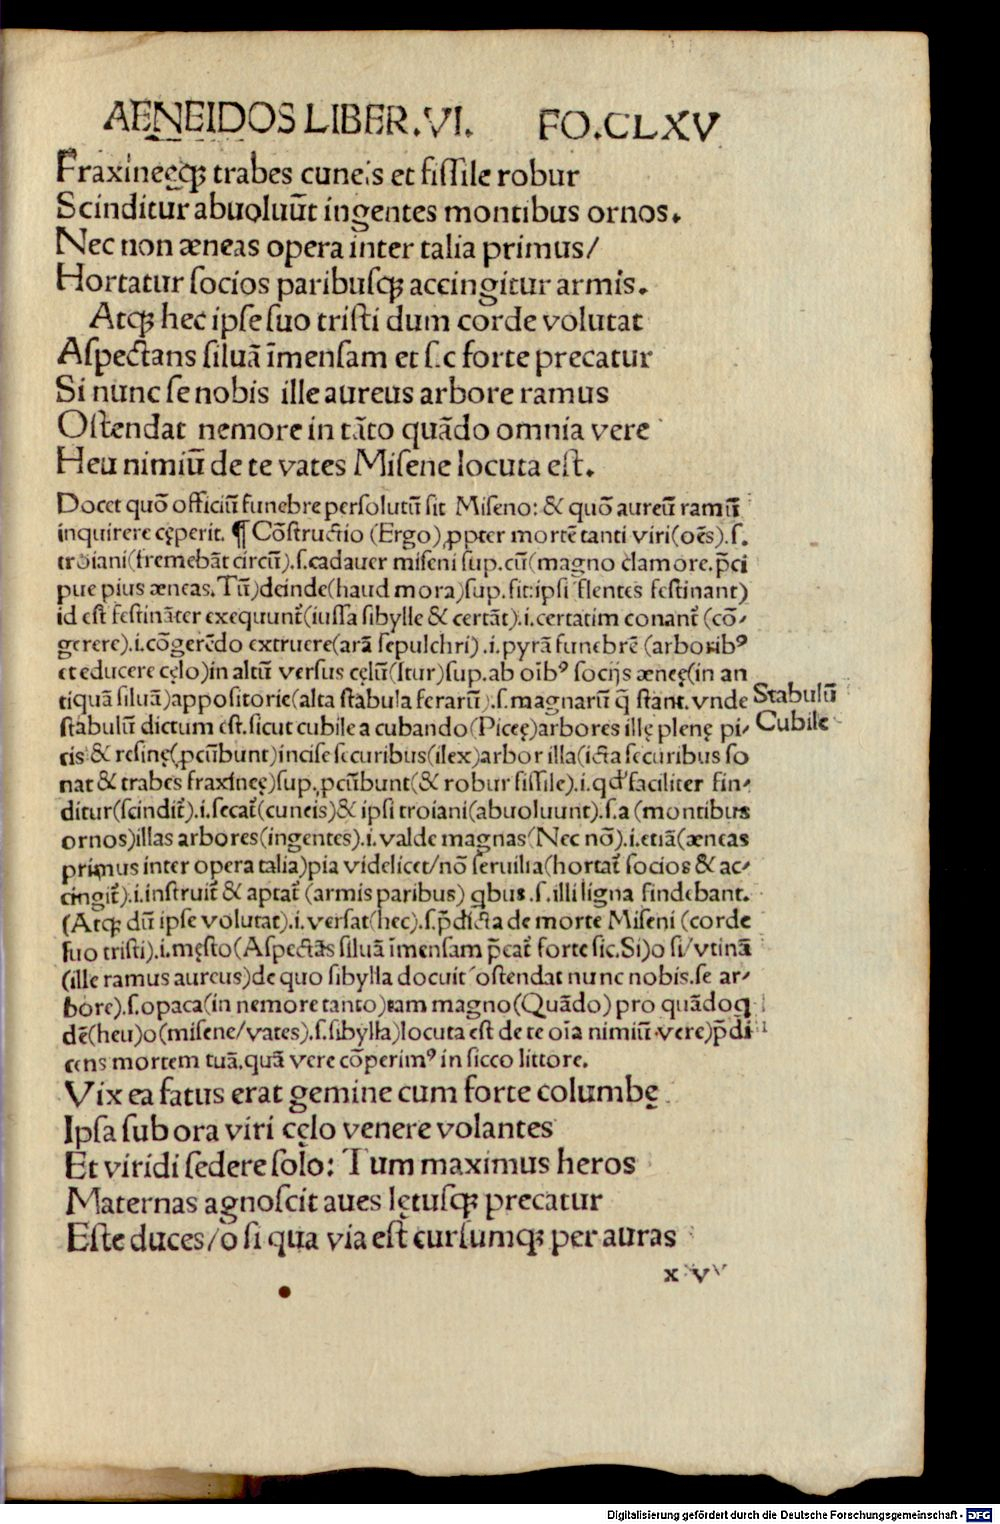 AENEIDOS LIBER.VI. FO.CLXV
Fraxineęq; trabes cuneis et fissile robur
Scinditur abuoluūt ingentes montibus ornos.
Nec non æneas opera inter talia primus/
Hortatur socios paribusq; accingitur armis.
Atq; hec ipse suo tristi dum corde volutat
Aspectans siluā īmensam et sic forte precatur
Si nunc se nobis ille aureus arbore ramus
Ostendat nemore in tāto quādo omnia vere
Heu nimiū de te vates Misene locuta est.
Docet quō officiū funebre persolutū sit Miseno: & quō aureū ramū
inquirere cęperit. ¶ Cōstructio (Ergo) ꝓpter mortē tanti viri(oēs).s.
troiani(fremebāt circū).s.cadauer miseni sup.cū(magno clamore.p̄ci
pue pius æneas.Tū)deinde(haud mora)sup.fit:ipsi flentes festinant)
id est festināter exequunt̄(iussa sibylle & certāt).i.certatim conant̄ (cō-
gerere).i.cōgerēdo extruere(arā sepulchri).i.pyrā funebrē (arboribꝰ
et educere cęlo)in altū versus cęlū(Itur)sup.ab oībꝰ socijs æneę(in an
tiquā siluā)appositorie(alta stabula ferarū).s.magnarū q̄ stant.vnde
stabulū dictum est.sicut cubile a cubando(Piceę)arbores illę plenę pi-
cis & resinę(ꝓcūbunt)incise securibus(ilex)arbor illa(icta securibus so
nat & trabes fraxineę)sup.ꝓcūbunt(& robur fissile).i.qđ faciliter fin-
ditur(scindit̄).i.secat̄(cuneis)& ipsi troiani(abuoluunt).s.a (montibus
ornos)illas arbores(ingentes).i.valde magnas(Nec nō).i.etiā(æneas
primus inter opera talia)pia videlicet/nō seruilia(hortat̄ socios & ac-
cingit̄).i.instruit̄ & aptat̄ (armis paribus) qbus.s.illi ligna findebant.
(Atq; dū ipse volutat).i.versat(hec).s.p̄dicta de morte Miseni (corde
suo tristi).i.męsto(Aspectās siluā īmensam p̄cat̄ forte sic.Si)o si/vtinā
(ille ramus aureus)de quo sibylla docuit ostendat nunc nobis.se ar-
bore).s.opaca(in nemore tanto)tam magno(Quādo) pro quādoq
dē(heu)o(misene/vates).s.sibylla)locuta est de te oīa nimiū vere)p̄di
cens mortem tuā.quā vere cōperimꝰ in sicco littore.
Stabulū
Cubile
Vix ea fatus erat gemine cum forte columbę
Ipsa sub ora viri cęlo venere volantes
Et viridi sedere solo: Tum maximus heros
Maternas agnoscit aues lętusq; precatur
Este duces/o si qua via est cursumq; per auras
x v
Digitalisierung gefördert durch die Deutsche Forschungsgemeinschaft - DFG